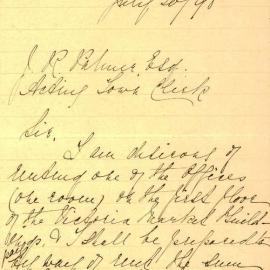 July 20/98
J. R. Palmer, Esq.
Acting Town Clerk
Sir,
I am desirous of
renting one of the offices
(one room) on the first floor
of the Victoria Market Build-
ings, & I shall be prepared to
pay by way of rent the sum